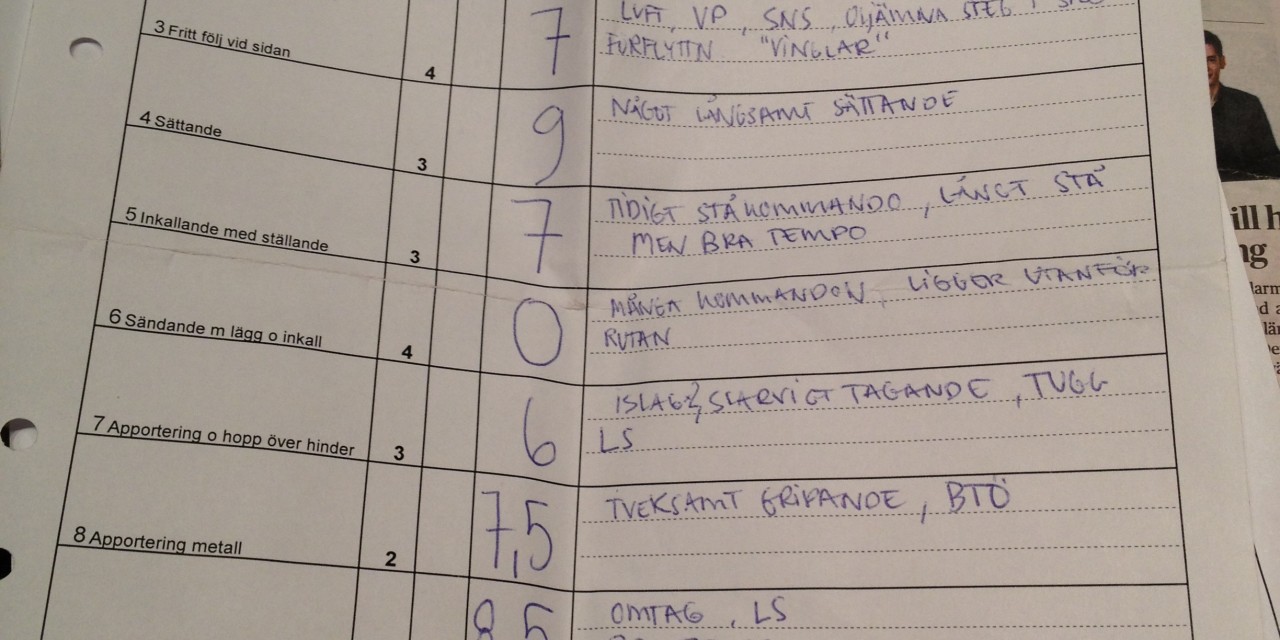 3 Fritt följ vid sidan 4 7 LVFT, VP, SNS, OJÄMNA STEG
FÖRFLYTTN "VINGLAR"
4 Sättande 3 9 NÅGOT LÅNGSAMT SÄTTANDE
5 Inkallande med ställande 3 7 TIDIGT STÅKOMMANDO, LÅNGT STÅ
MEN BRA TEMPO
6 Sändande m lägg o inkall 4 0 MÅNGA KOMMANDON, LIGGER UTANFÖR
RUTAN
7 Apportering o hopp över hinder 3 6 ISLAG, SLARVIGT TAGANDE, TUGG
LS
8 Apportering metall 2 7,5 TVEKSAMT GRIPANDE, BTÖ
8,5 OMTAG, LS
ill h
ng